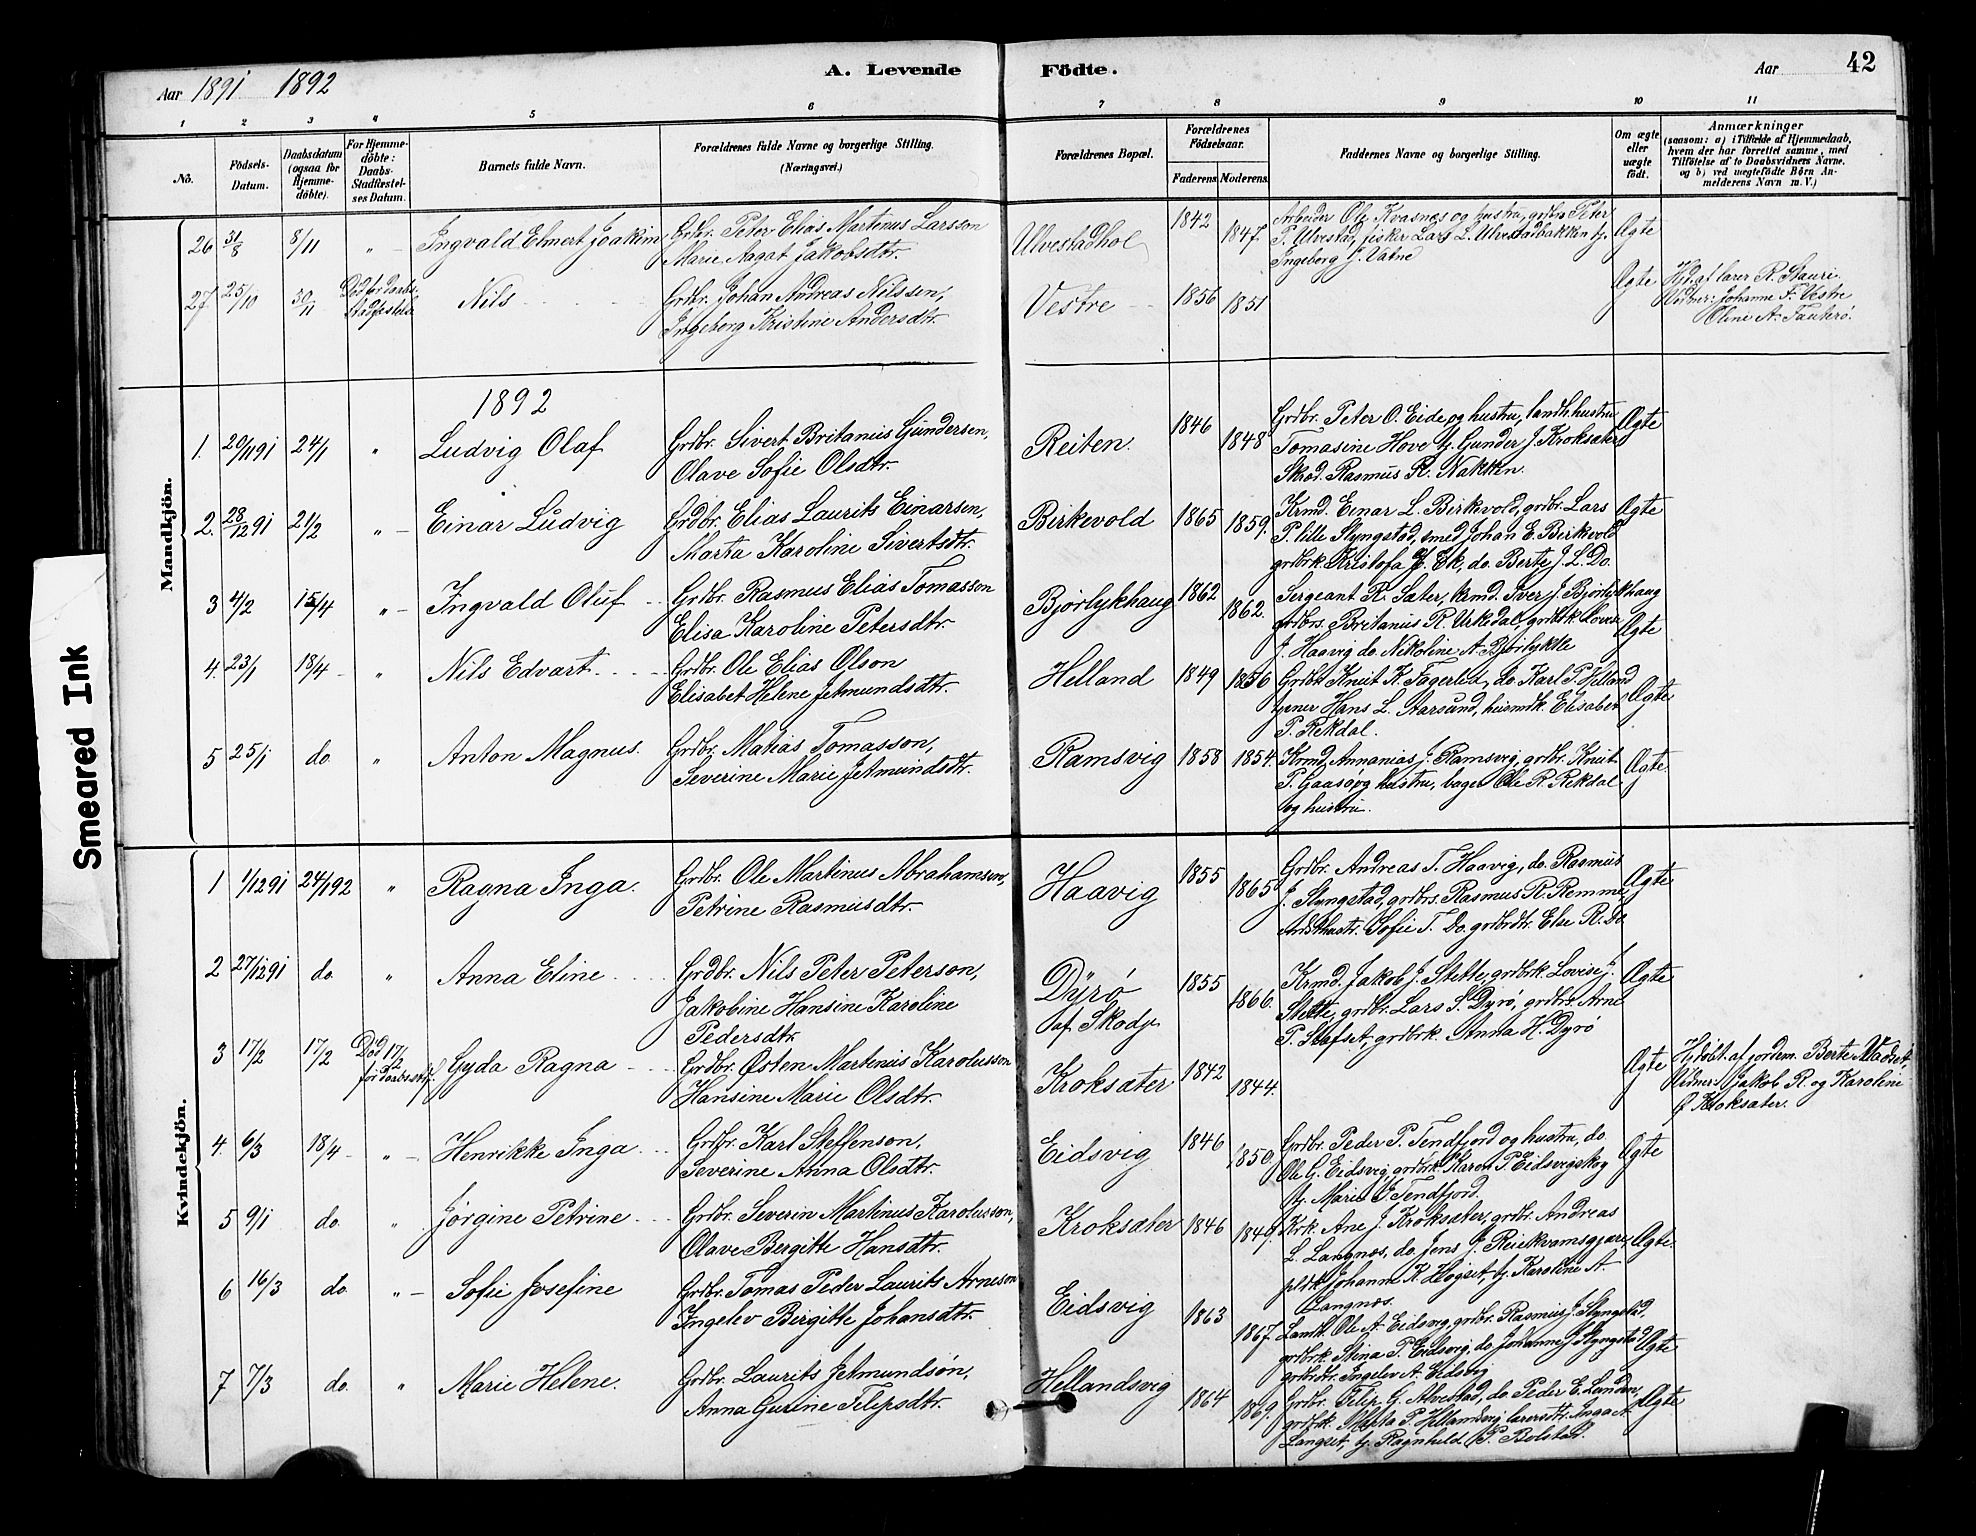 Aar 1891 1892
A. Levende Födte.
Aar 42
1 2 3 4 5 6 7 8 9 10 11
No.
Födsels-Datum.
Daabsdatum (ogsaa for Hjemme-døbte).
For Hjemme-døbte: Daabs-Stadfæstel-ses Datum.
Barnets fulde Navn.
Forældrenes fulde Navne og borgerlige Stilling. (Næringsvei.)
Forældrenes Bopæl.
Forældrenes Födselsaar.
Faderens Moderens.
Faddernes Navne og borgerlige Stilling.
Om ægte eller uægte födt.
Anmærkninger
(saasom: a) i Tilfælde af Hjemmedaab, hvem der har forrettet samme, med Tilföielse af to Daabsvidners Navne. og b) ved uægtefödte Börn An-melderens Navn m. V.)
Mandkjön.
26 31/8 8/11 " Ingvald Elmert Joakim Grdbr. Peter Elias Martinus Larsson
Marie Aagat Jakobsdtr. Ulvestadhol 1842 1847.
Arbeider Ole Kvasnes og hustru, grdbrs Peter
P. Ulvestad, fisker Lars L. Ulvestadbakken tj.
Ingeborg J. Vatne Ægte
27 25/10 30/11 Död för daabs. Nils Grdbr. Johan Andreas Nilssen,
Ingeborg Kristine Andersdtr. Vestre 1856 1851
Ægte Hjd. af lærer R. Stauri.
Vidner: Johanne F. Vestre
Oline A.
1892
1. 29/11 91 24/1 " Ludvig Olaf Grdbr. Sivert Britanius Gundersen,
Olave Sofie Olsdtr. Reiten. 1846 1848
Grdbr. Peter O. Eide og hustru, landh. hustru
Tomasine Hove tj. Gunder J. Kroksæter
Skræd. Rasmus R. Nakken. Ægte
2. 28/12 91 21/2 " Einar Ludvig Grdbr. Elias Laurits Einarsen,
Marta Karoline Sivertsdtr. Birkevold 1865 1859.
Krmd. Einar L. Birkevold, grdbr. Lars
P. lille Slyngstad, smed Johan E. Birkevold
grdbrk. Kristofa J. Ek, do. Berte J. L. Do. Ægte
3 4/2 15/4 " Ingvald Oluf Grdbr. Rasmus Elias Tomasson
Elisa Karoline Petersdtr. Bjørlykhaug 1862 1862.
Sergeant R. Sæter, krmd. Iver J. Bjørlykhaug
grdbrs. Britanus R. Urkedal, grdbrk. Lovise
J. Haavig do. Nikoline A. Bjørlykke Ægte
4. 23/1 18/4 " Nils Edvart Grdbr. Ole Elias Olson
Elisabet Helene Jetmundsdtr. Helland 1849 1856
Grdbr. Knut K. Fagerlid, do. Karl P. Helland
tjener Hans L. Aarsund, husmdk. Elisabet
P. Rekdal. Ægte
5 25/1 do. " Anton Magnus. Grdbr. Matias Tomasson,
Severine Marie Jetmundsdtr. Ramsvig 1858 1854.
Krmd. Annanias J. Ramsvig, grdbr. Knut
P. Gaasø og hustru, bager Ole R. Rekdal
og hustru. Ægte.
Kvindekjön.
1 1/12 91 24/1 92 " Ragna Inga. Grdbr. Ole Martinus Abrahamsen,
Petrine Rasmusdtr. Haavig 1855 1865
Grdbr. Andreas T. Haavig, do. Rasmus
J. Slyngstad, grdbrs. Rasmus R. Remme,
Sofie T. Do. grdbrdtr. Else R. Do Ægte
2 27/12 91 do. " Anna Eline Grdbr. Nils Peter Peterson,
Jakobine Hansine Karoline
Pedersdtr. Dyrø af Skodje 1855 1866.
Krmd. Jakob J. Stette, grdbrk. Lovise J.
Stette, grdbr. Lars S. Dyrø, grdbrs. Arne
P. Slafset, grdbrk. Anna H. Dyrø Ægte
3 17/2 17/2 Död 17/2 för daabsstadf. Gyda Ragna Grdbr. Østen Martinus Karolusson
Hansine Marie Olsdtr. Kroksæter 1842 1844.
Ægte Hjdøbt. af jordem. Berte Vadset,
Vidner: Jakob R. og Karoline
Kroksæter.
4. 6/3 18/4 " Henrikke Inga Grdbr. Karl Steffenson,
Severine Anna Olsdtr. Eidsvig 1846 1850.
Grdbr. Peder P. Tendfjord og hustru, do.
Ole G. Eidsvig, grdbrk. Karen P. Eidsvigskog
tj. Marie Tendfjord. Ægte
5 9/1 do. " Jørgine Petrine Grdbr. Severin Martinus Karolusson,
Olave Bergitte Hansdtr. Kroksæter 1846 1849.
Krk. Ane J. Kroksæter, grdbr. Andreas
L. Langnæs, do. Jens J.
Johanne K. Høgset, tj. Karoline A.
Langnæs. Ægte.
6 16/3 do. " Sofie Josefine Grdbr. Tomas Peder Laurits Arneson
Ingelev Birgitte Johansdtr. Eidsvig 1863 1867.
Landh. Ole A. Eidsvig, grdbr. Rasmus J. Slyngstad,
grdbrk. Stina P. Eidsvig, do Johanne J. Slyngstad
grdbrdtr. Ingelev A. Eidsvig Ægte
7 7/3 do. " Marie Helene. Grdbr. Laurits Jetmundsøn,
Anna Gurine Filipsdtr. Hellandsvig 1864 1869.
Grdbr. Filip G. Alvestad, do. Peder E. Landen,
grdbrk. Marta P. Hellandsvig lærersdtr. Inga A.
Langset, tj. Ragnhild P. Bolstad. Ægte
Smeared Ink